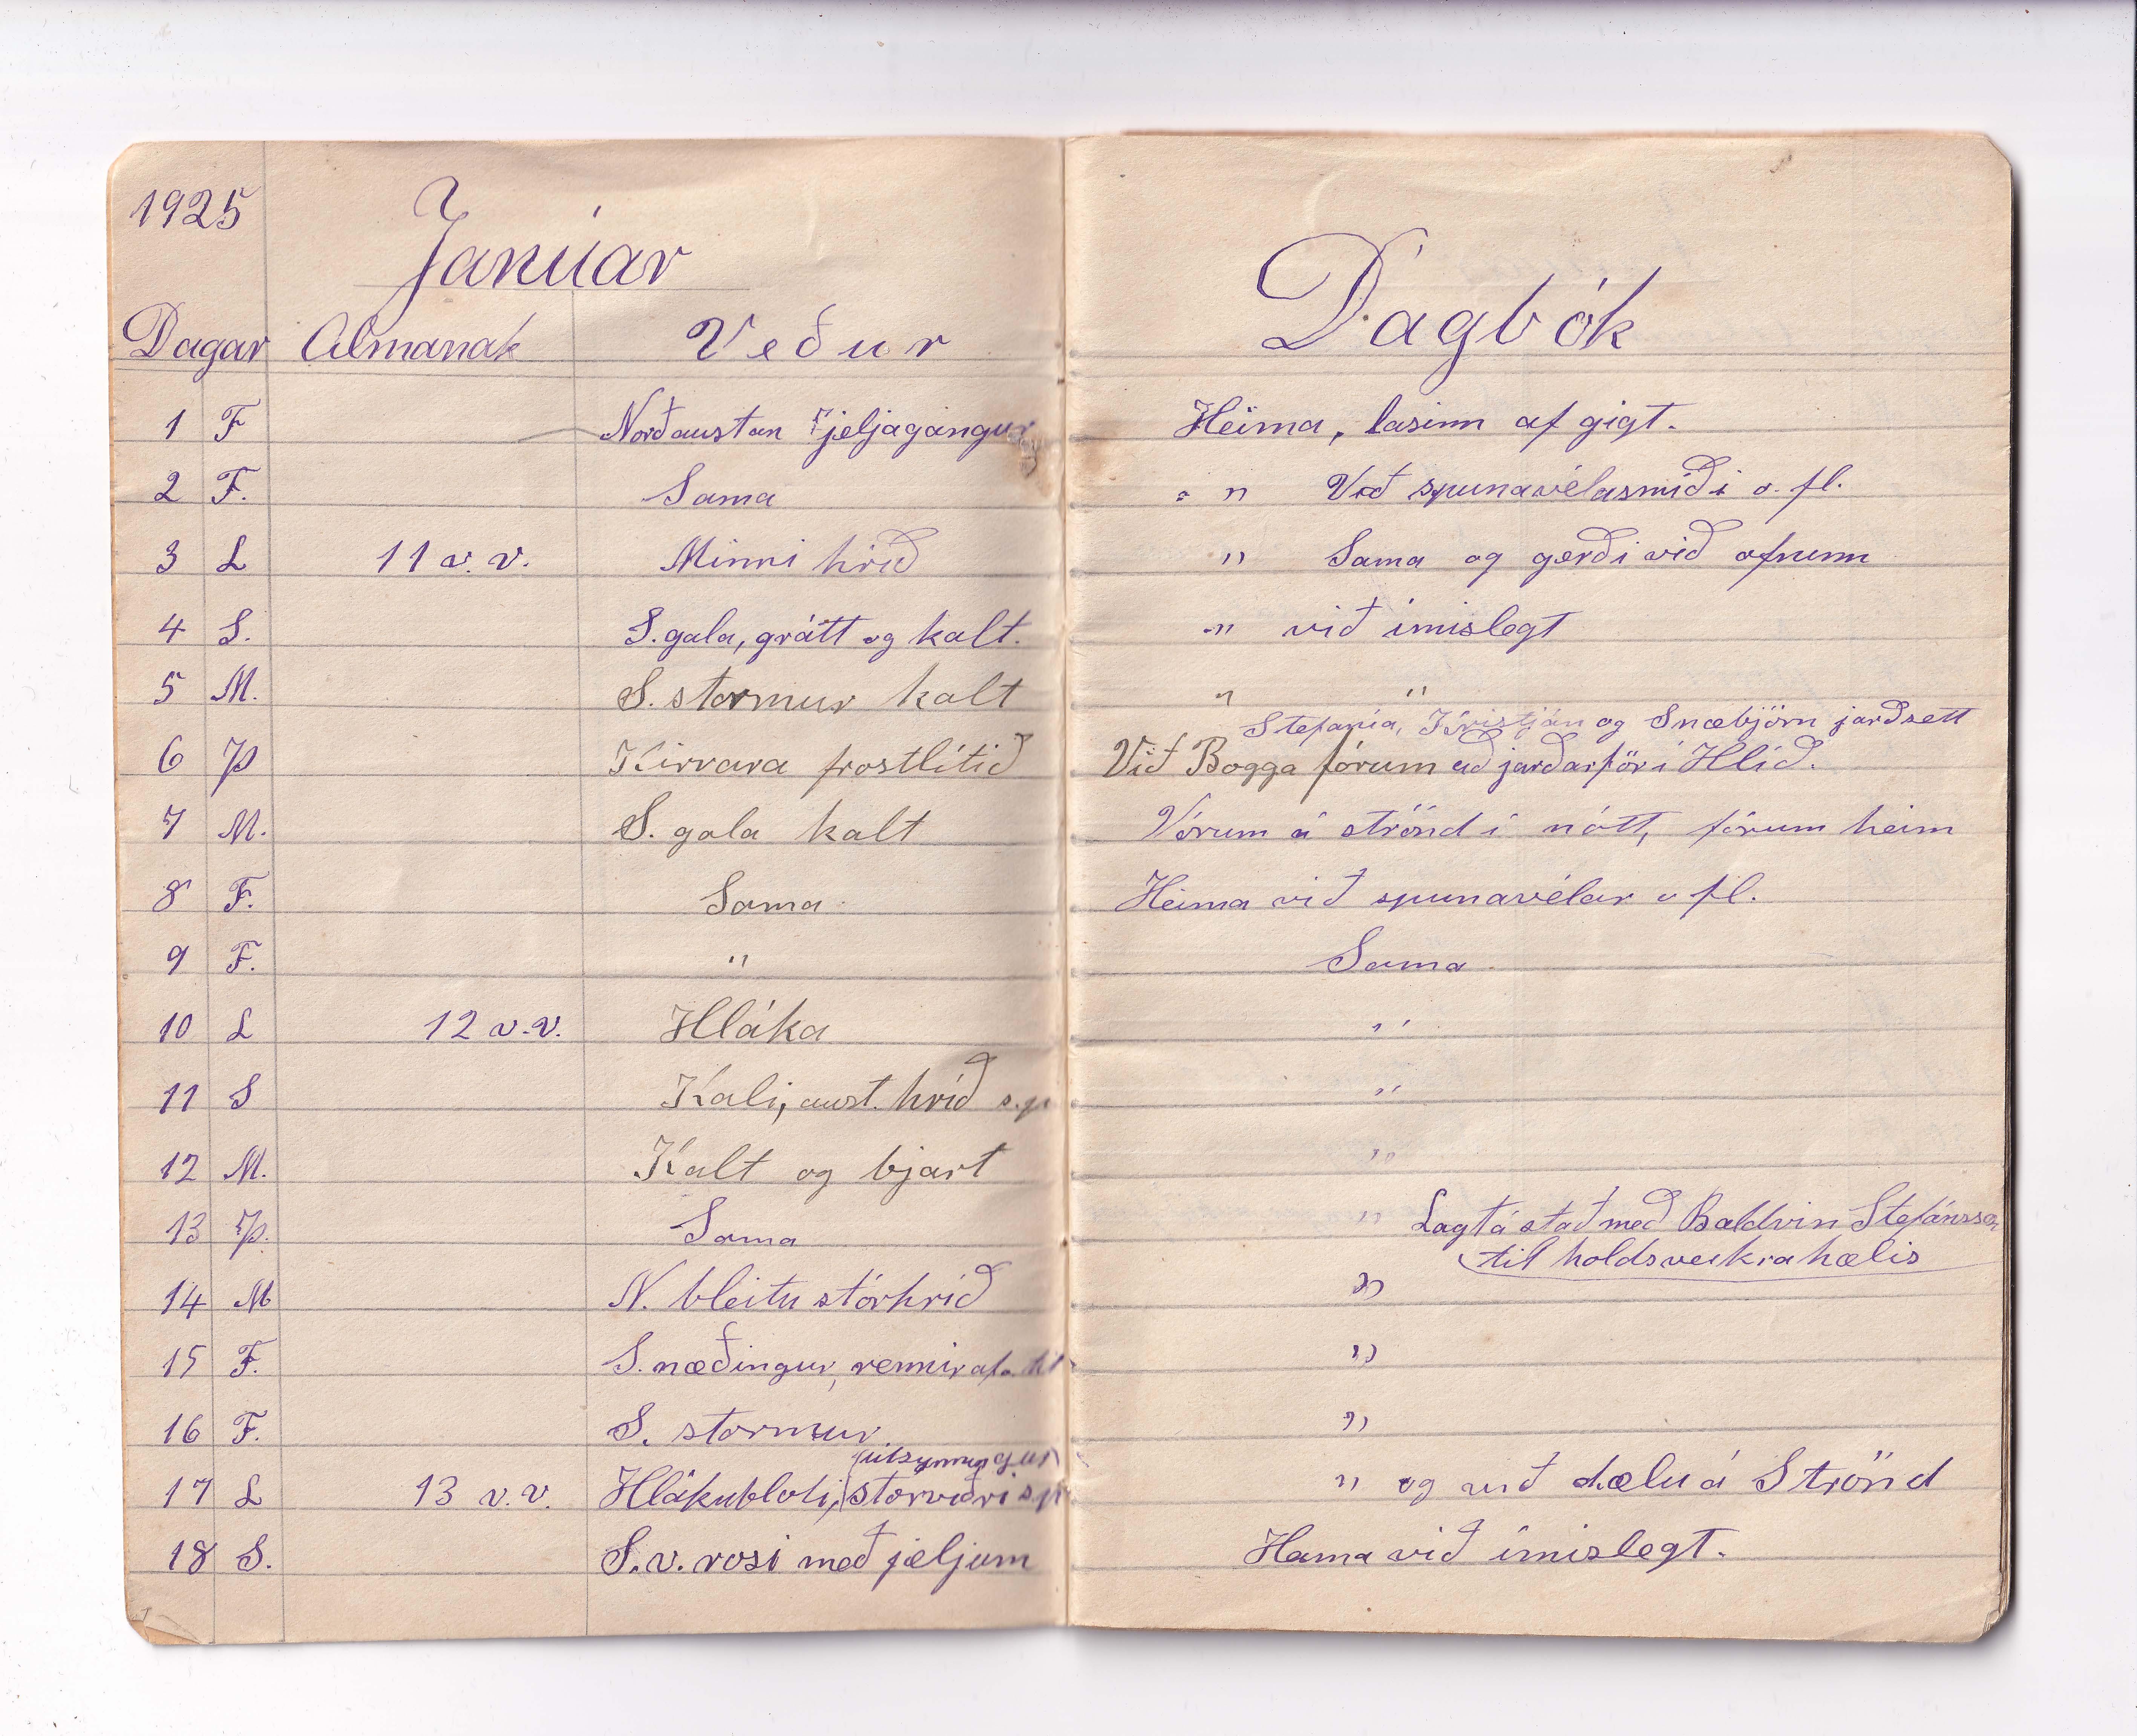 1925
Janúar
Dagar Almanak Veður
1 F Norðaustan jeljagangur
2 F. Sama
3 L 11 v. v. Minni hríð
4 S. S. gola, grátt og kalt.
5 M. S. stormur kalt
6 Þ Kirrara frostlítið
7 M. S. gola kalt
8 F. Sama
9 F. "
10 L 12 v.v. Hláka
11 S Kali, aust. hríð s.p
12 M. Kalt og bjart
13 Þ. Sama
14 M N. bleitu stórhríð
15 F. S. næðingur, rennir af
16 F. S. stormur
útsynningur
17 L 13 v. v. Hlákubloti, stórviðri s.p
18 S. S.v. rosi með jeljum
Dagbók
Heima, lasinn af gigt.
" " Við spunavélasmíði o. fl.
" Sama og gerði við ofninn
" við ímislegt
" "
Stefanía, Kristján og Snæbjörn jarðsett
Við Bogga fórum að jarðarför í Hlíð.
Vórum á strönd í nótt, fórum heim
Heima við spunavélar o fl.
Sama
"
"
"
" Lagt á stað með Baldvin Stefánsson
til holdsveikrahælis
"
"
"
" og við dælu á Strönd
Heima við ímislegt.